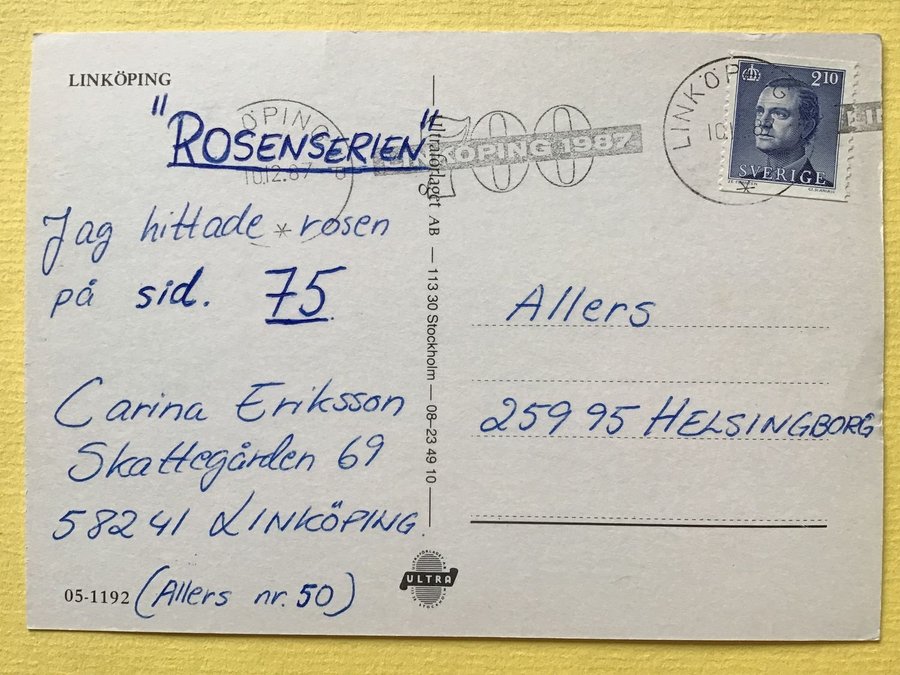 LINKÖPING
"ROSENSERIEN"
Jag hittade rosen
på sid. 75.
Carina Eriksson
Skattegården 69
58241 LINKÖPING.
05-1192 (Allers nr. 50)
Ultraförlaget AB — 113 30 Stockholm — 08–23 49 10 —
ULTRA
KÖPING
10.12.87
700
LINKÖPING 1987
LINKÖPING
210
SVERIGE
Allers
259 95 HELSINGBORG